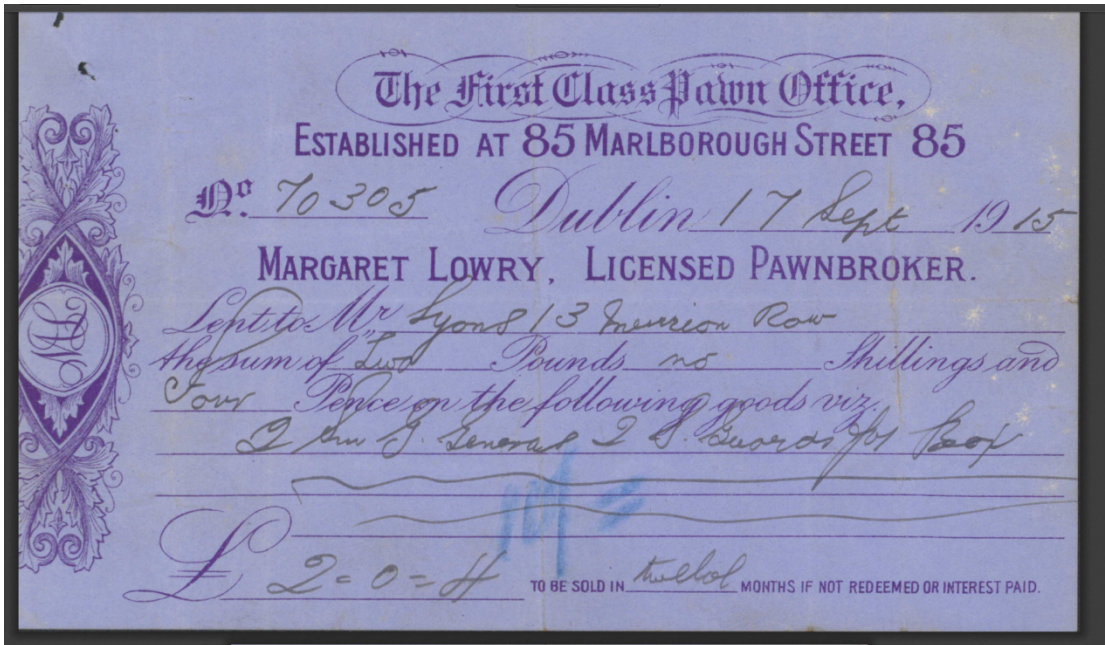 The First Class Pawn Office,
ESTABLISHED AT 85 MARLBOROUGH STREET 85
No. 70305 Dublin 17 Sept 1915
MARGARET LOWRY, LICENSED PAWNBROKER.
Lent to Mr Lyons 13 Merrion Row
the sum of Two Pounds no Shillings and
Four Pence on the following goods viz.
2 2 Guards Box
£ 2=0=4 TO BE SOLD IN MONTHS IF NOT REDEEMED OR INTEREST PAID.
ML